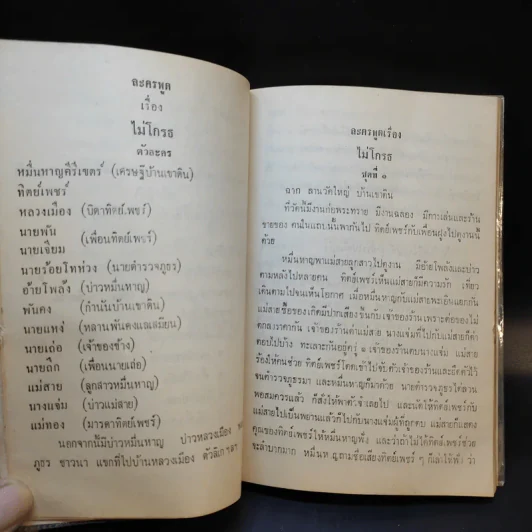 ละครพูด
เรื่อง
ไม่โกรธ
ตัวละคร
หมื่นหาญคีรีเขตร์ (เศรษฐีบ้านเขาดิน)
ทิดย์เพชร์
หลวงเมือง (บิดาทิดย์เพชร์)
นายพัน
นายเจียม (เพื่อนทิดย์เพชร์)
นายร้อยโทห่วง (นายตำรวจภูธร)
อ้ายโพล้ง (บ่าวหมื่นหาญ)
พันคง (กำนันบ้านเขาดิน)
นายแหง่ (หลานพันคงแลเสมียน)
นายเถ่อ (เจ้าของช้าง)
นายถึก (เพื่อนนายเถ่อ)
แม่สาย (ลูกสาวหมื่นหาญ)
นางแจ่ม (บ่าวแม่สาย)
แม่ทอง (มารดาทิดย์เพชร์)
นอกจากนี้มีบ่าวหมื่นหาญ บ่าวหลวงเมือง
ภูธร ชาวนา แขกที่ไปบ้านหลวงเมือง ตัวลิเก ฯลฯ
ละครพูดเรื่อง
ไม่โกรธ
ชุดที่ ๑
ฉาก ลานวัดใหญ่ บ้านเขาดิน
ที่วัดนี้มีงานก่อพระทราย มีงานฉลอง มีการเล่นและร้าน
ขายของ คนในแถบนั้นพากันไป ทิดย์เพชร์กับเพื่อนฝูงไปดูงานนี้
ด้วย
หมื่นหาญพาแม่สายลูกสาวไปดูงาน มีอ้ายโพล้งและบ่าว
ตามหลังไปหลายคน ทิดย์เพชร์เห็นแม่สายก็มีความรัก เที่ยว
เดินตามไปจนเห็นโอกาศ เมื่อหมื่นหาญกับแม่สายพะเอินแยกกัน
แม่สายซื้อของเกิดมีปากเสียงขึ้นกับเจ้าของร้านเพราะต่อของไม่
ตกลงราคากัน เจ้าของร้านด่าแม่สาย นางแจ่มที่ไปกับแม่สายก็ด่า
ตอบไปบ้าง ทะเลาะกันอยู่ครู่ ๑ เจ้าของร้านตบนางแจ่ม แม่สาย
ร้องให้คนช่วย ทิดย์เพชร์โดดเข้าไปจับตัวเจ้าของร้านและยึดตัวไว้
จนตำรวจภูธรมา และหมื่นหาญก็มาด้วย นายตำรวจภูธรไต่สวน
พอสมควรแล้ว ก็สั่งให้พาตัวจำเลยไป และนัดให้ทิดย์เพชร์กับ
แม่สายไปเป็นพยานแล้วก็ไปกับนางแจ่มผู้ที่ถูกตบ แม่สายก็แสดง
คุณของทิดย์เพชร์ให้หมื่นหาญฟัง และว่าถ้าไม่ได้ทิดย์เพชร์ช่วย
จะลำบากมาก หมื่นหาญถามชื่อเสียงทิดย์เพชร์ ๆ ก็เล่าให้ฟัง ว่า